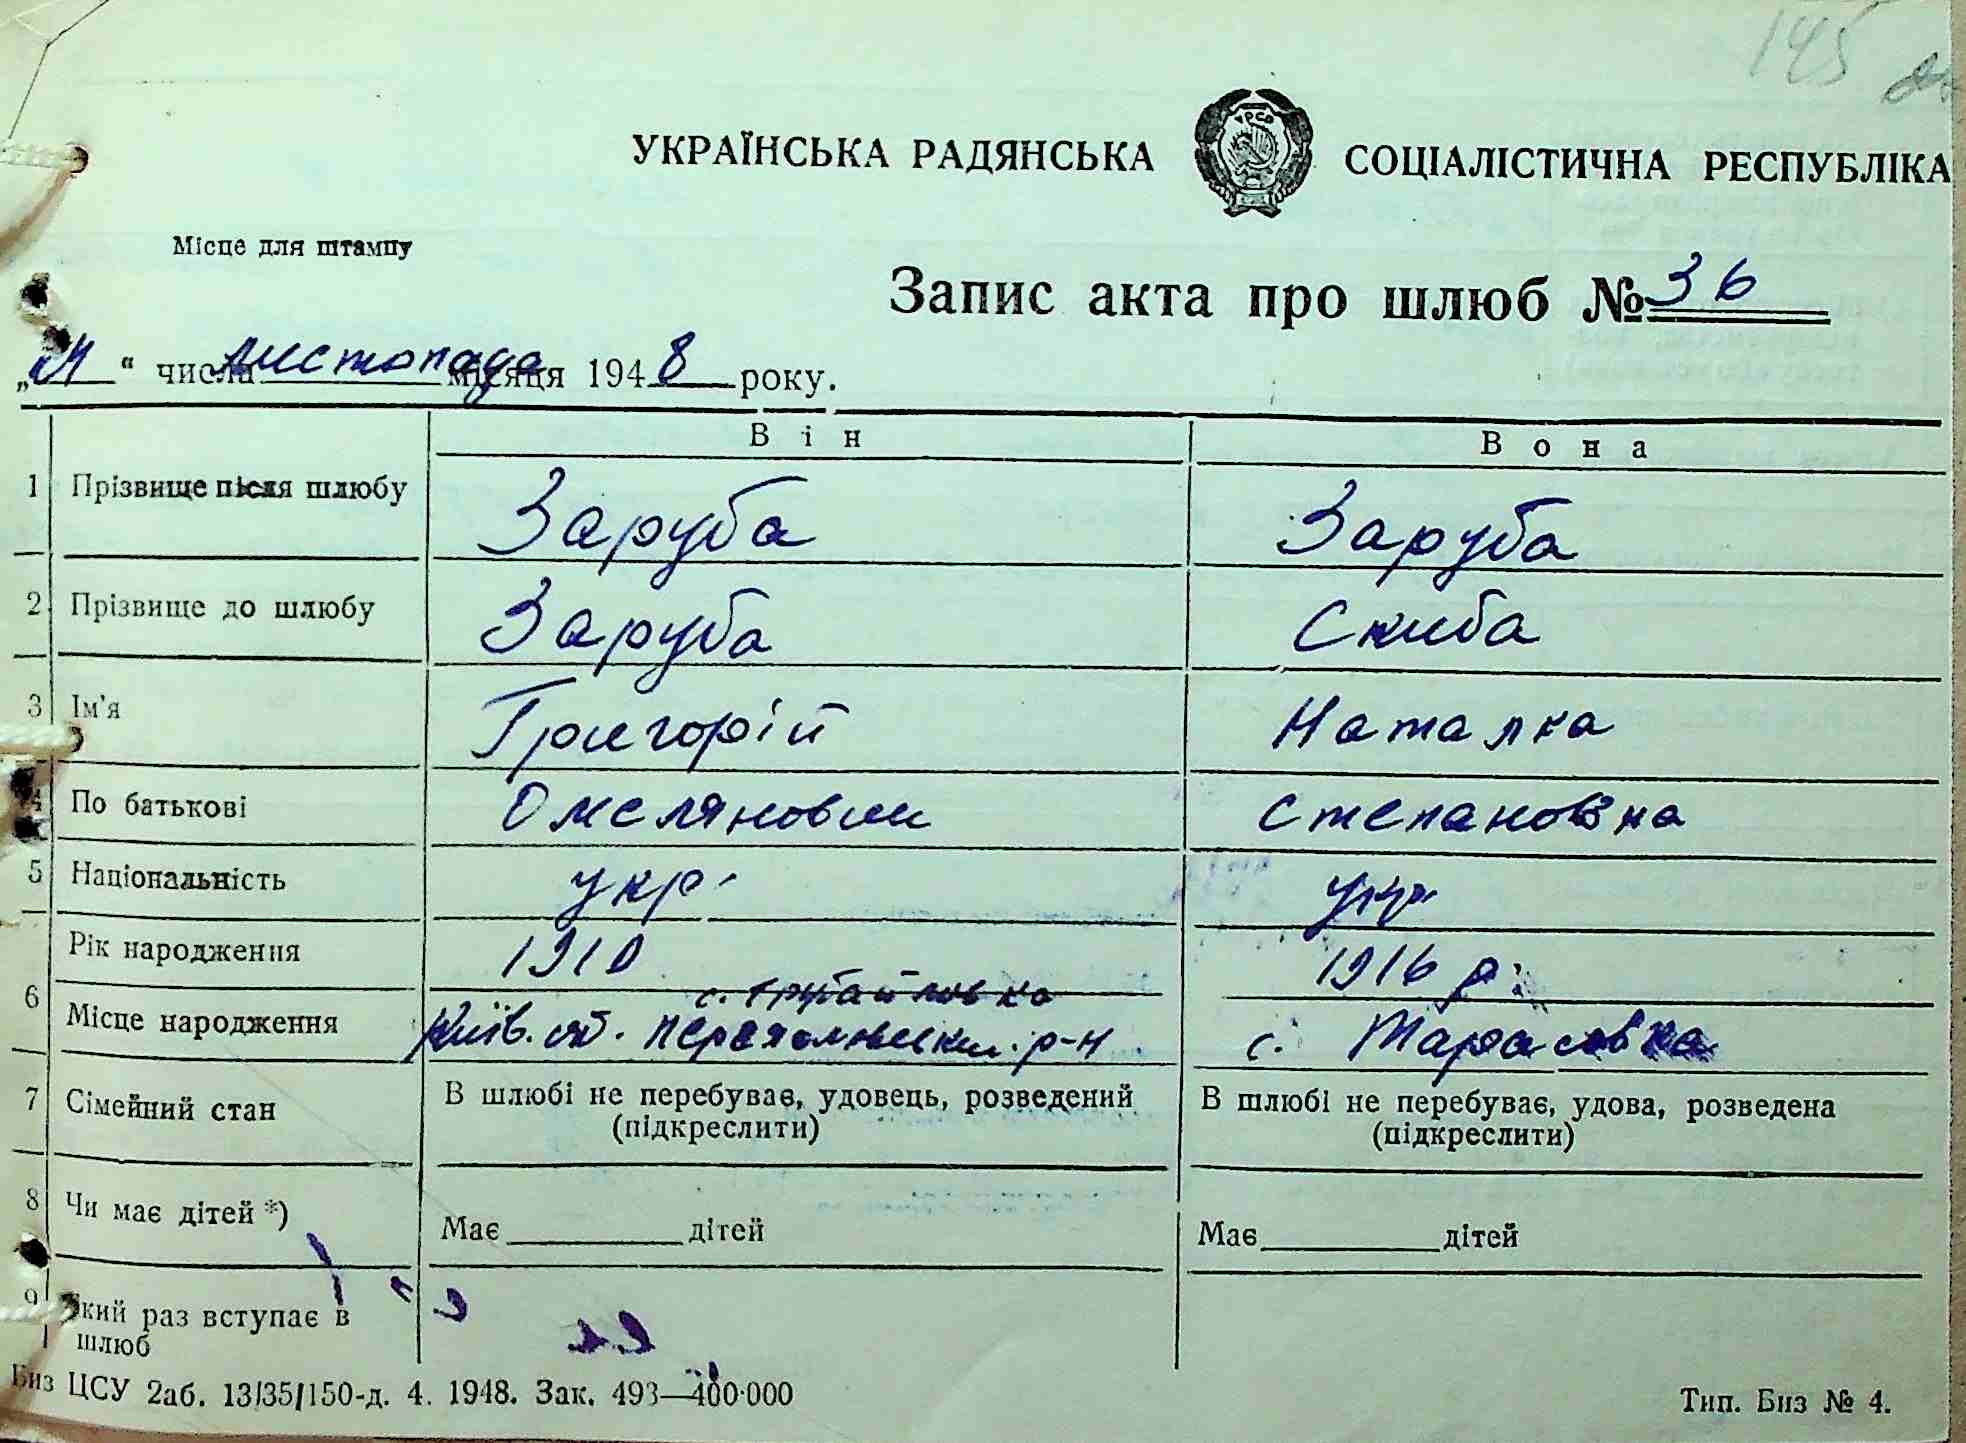 145
УКРАЇНСЬКА РАДЯНСЬКА СОЦІАЛІСТИЧНА РЕСПУБЛІКА
УРСР
Місце для штампу
Запис акта про шлюб № 36
„ “ числа листопада місяця 1948 року.
Він Вона
1 Прізвище після шлюбу Заруба Заруба
2 Прізвище до шлюбу Заруба Скиба
3 Ім'я Григорій Наталка
4 По батькові Омелянович Степановна
5 Національність укр. укр
Рік народження 1910 1916 р.
с. Трубайловка
6 Місце народження Київ. об. Переяловський р-н с. Тарасовка
7 Сімейний стан В шлюбі не перебуває, удовець, розведений В шлюбі не перебуває, удова, розведена
(підкреслити) (підкреслити)
8 Чи має дітей *) Має дітей Має дітей
9 Який раз вступає в
шлюб
Биз ЦСУ 2аб. 13/35/150-д. 4. 1948. Зак. 493—400·000 Тип. Биз № 4.